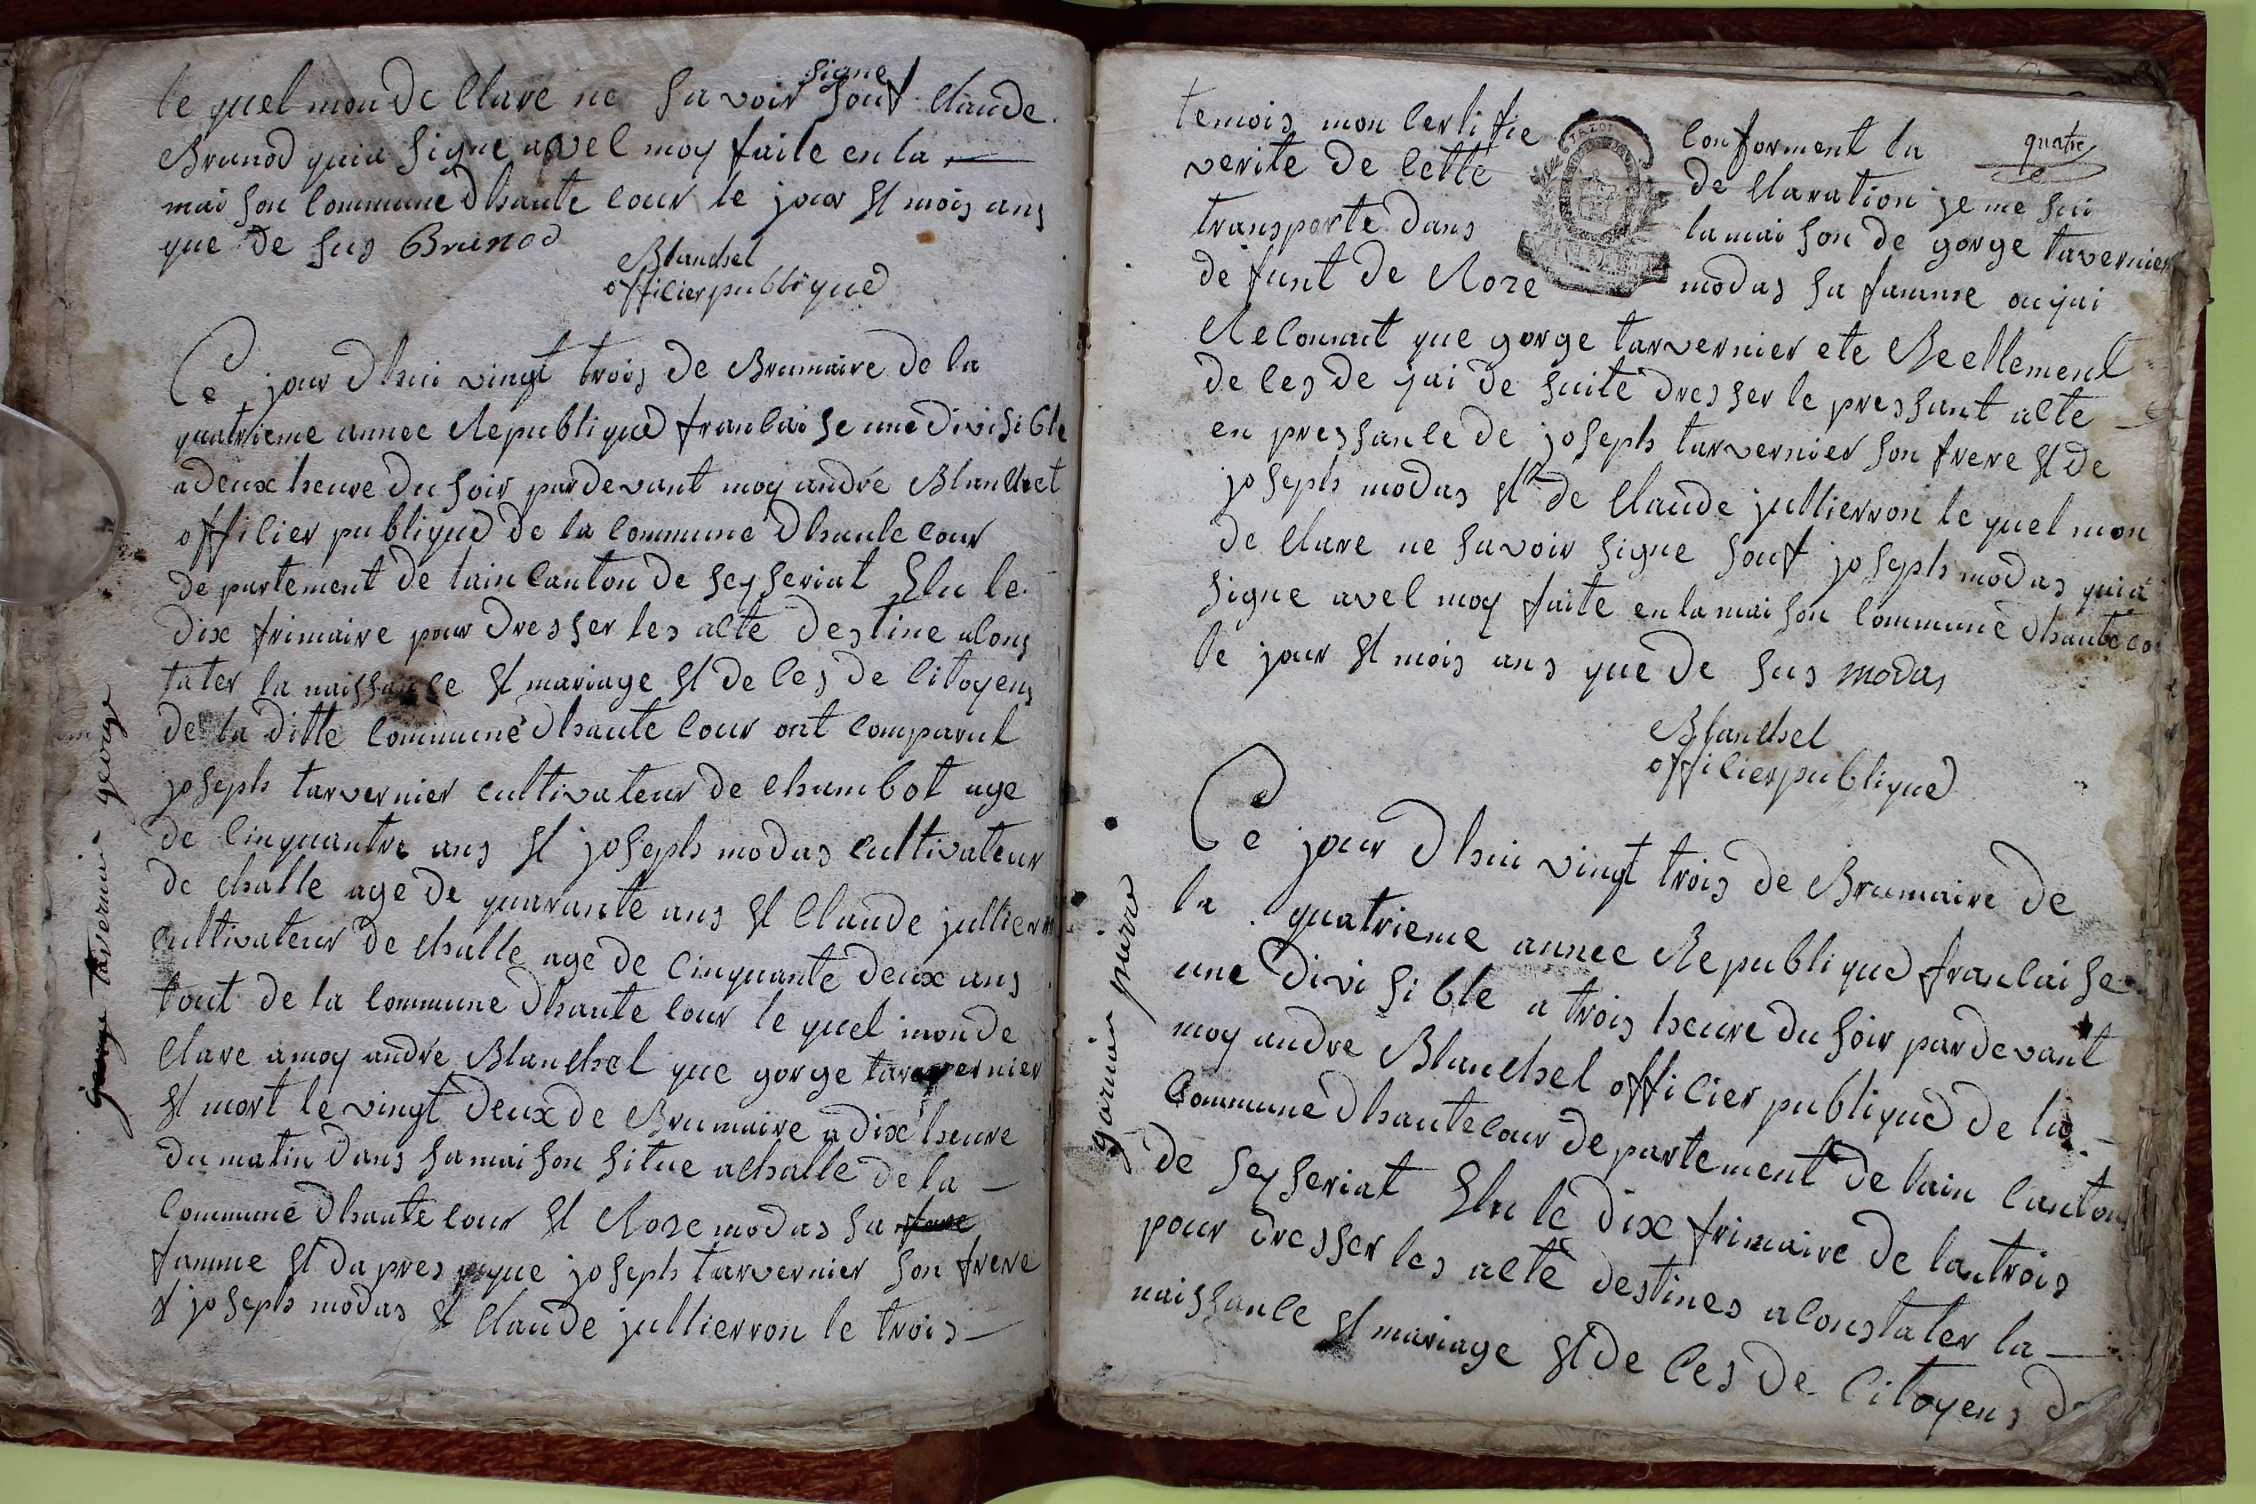 signe
le quel mon de clare ne savoir souf claude
Brunod quia signe avec moy faite en la
mai son commune dhaute cour le jour et mois ans
que de sus Brunod
Blanchet
officier publique
Ce jour dhui vingt trois de Brumaire de la
quatrieme annee Republique francai se une divisible
a deux heure du soir pardevant moy andré Blanchet
officier publique de la commune dhaute cour
de partement de lain canton de seyseriat Elu le
dix frimaire pour dresser les acte destine a cons
tater la naissance et mariage et de ces de citoyens
de la ditte commune dhaute cour ont comparut
joseph tarvernier cultivateur de chambot age
de cinquantre ans et joseph modas cultivateur
de challe age de quarante ans et claude jullierron
cultivateur de challe age de cinquante deux ans
tout de la commune dhaute cour le quel mon de
clare a moy andré Blanchet que gorge tarvernier
et mort le vingt deux de Brumaire a dix heure
du matin dans sa mai son situe a challe de la
commune dhaute cour et Roze modas sa
famme et da pres que joseph tarvernier son frere
et joseph modas et claude jullierron le trois
george tavernier george
temois mon certifie conforment la
quatre
verite de cette de claration je me sui
transporte dans la mai son de gorge tavernier
defunt de Roze modas sa famme ou jai
Reconnut que gorge tarvernier ete Reellement
de ces de jai de suite dresser le pressant acte
en pressance de joseph tarvernier son frere et de
joseph modas et de claude jullierron le quel mon
de clare ne savoir signe souf joseph modas quia
signe avec moy faite en la mai son commune dhaute cou
le jour et mois ans que de sus modas
Blanchet
officier publique
Ce jour dhui vingt trois de Brumaire de
la quatrieme annee Republique francai se
une divi sible a trois heure du soir pardevant
moy andre Blanchet officier publique de la
commune dhaute cour de partement de lain canton
de seyseriat Elu le dix frimaire de lantrois
pour dresser les acte destines a constater la
naissance et mariage et de ces de citoyens de
gornier pierre